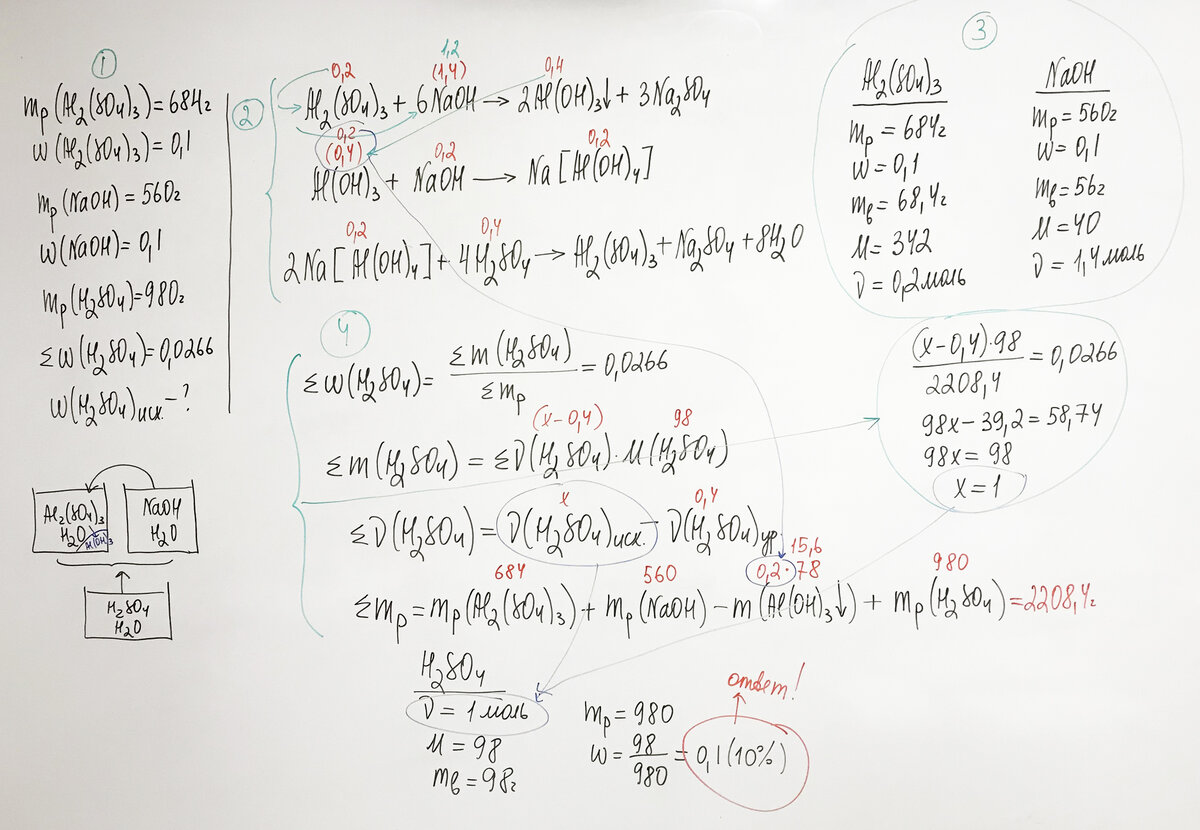 1
mр(Al₂(SO₄)₃)=684г
w(Al₂(SO₄)₃)=0,1
mр(NaOH)=560г
w(NaOH)=0,1
mр(H₂SO₄)=980г
Σw(H₂SO₄)=0,0266
w(H₂SO₄)исх.-?
Al₂(SO₄)₃
H₂O
Al(OH)₃
NaOH
H₂O
H₂SO₄
H₂O
2
0,2 1,2 (1,4) 0,4
Al₂(SO₄)₃ + 6NaOH → 2Al(OH)₃↓ + 3Na₂SO₄
0,2 (0,4) 0,2 0,2
Al(OH)₃ + NaOH → Na[Al(OH)₄]
0,2 0,4
2Na[Al(OH)₄] + 4H₂SO₄ → Al₂(SO₄)₃ + Na₂SO₄ + 8H₂O
3
Al₂(SO₄)₃
mр = 684г
w = 0,1
mв = 68,4г
M = 342
ν = 0,2моль
NaOH
mр = 560г
w = 0,1
mв = 56г
M = 40
ν = 1,4моль
4
Σw(H₂SO₄) = Σm(H₂SO₄) / Σmр = 0,0266
(x-0,4) 98
Σm(H₂SO₄) = Σν(H₂SO₄)·M(H₂SO₄)
x 0,4
Σν(H₂SO₄) = ν(H₂SO₄)исх. - ν(H₂SO₄)ур
15,6
684 560 0,2·78 980
Σmр = mр(Al₂(SO₄)₃) + mр(NaOH) - m(Al(OH)₃↓) + mр(H₂SO₄) = 2208,4г
(x-0,4)·98 / 2208,4 = 0,0266
98x - 39,2 = 58,74
98x = 98
x = 1
H₂SO₄
ν = 1моль
M = 98
mв = 98г
mр = 980
w = 98/980 = 0,1(10%)
ответ!